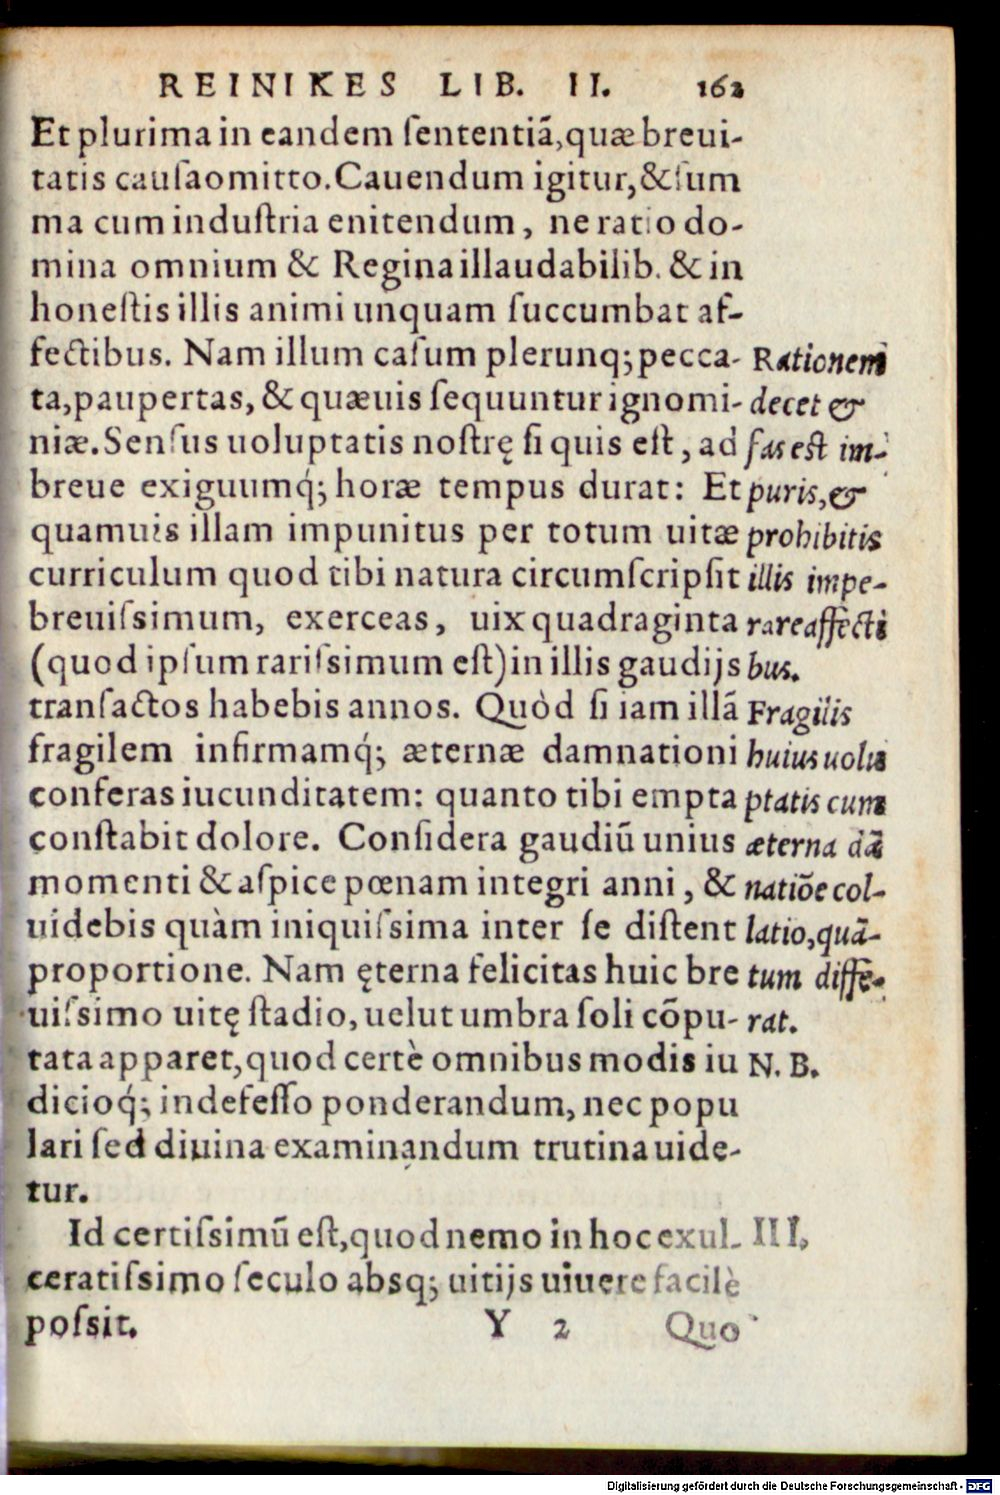 REINIKES LIB. II. 162
Et plurima in eandem ſententiã, quæ breui-
tatis cauſa omitto. Cauendum igitur, & ſum
ma cum induſtria enitendum, ne ratio do-
mina omnium & Regina illaudabilib. & in
honeſtis illis animi unquam ſuccumbat af-
fectibus. Nam illum caſum plerunq; pecca-
ta, paupertas, & quæuis ſequuntur ignomi-
niæ. Senſus uoluptatis noſtrę ſi quis eſt, ad
breue exiguumq́; horæ tempus durat: Et
quamuis illam impunitus per totum uitæ
curriculum quod tibi natura circumſcripſit
breuiſsimum, exerceas, uix quadraginta
(quod ipſum rariſsimum eſt) in illis gaudijs
tranſactos habebis annos. Quòd ſi iam illã
fragilem infirmamq́; æternæ damnationi
conferas iucunditatem: quanto tibi empta
conſtabit dolore. Conſidera gaudiũ unius
momenti & aſpice pœnam integri anni, &
uidebis quàm iniquiſsima inter ſe diſtent
proportione. Nam ęterna felicitas huic bre
uiſsimo uitę ſtadio, uelut umbra ſoli cõpu-
tata apparet, quod certè omnibus modis iu
dicioq́; indefeſſo ponderandum, nec popu
lari ſed diuina examinandum trutina uide-
tur.
Id certiſsimũ eſt, quod nemo in hoc exul-
ceratiſsimo ſeculo absq; uitijs uiuere facilè
poſsit.
Y 2 Quo
Rationem
decet &
fas est im-
puris, &
prohibitis
illis impe-
rare affecti
bus.
Fragilis
huius uolu
ptatis cum
æterna dã
natiõe col-
latio, quã-
tum diffe-
rat.
N. B.
III.
Digitalisierung gefördert durch die Deutsche Forschungsgemeinschaft - DFG